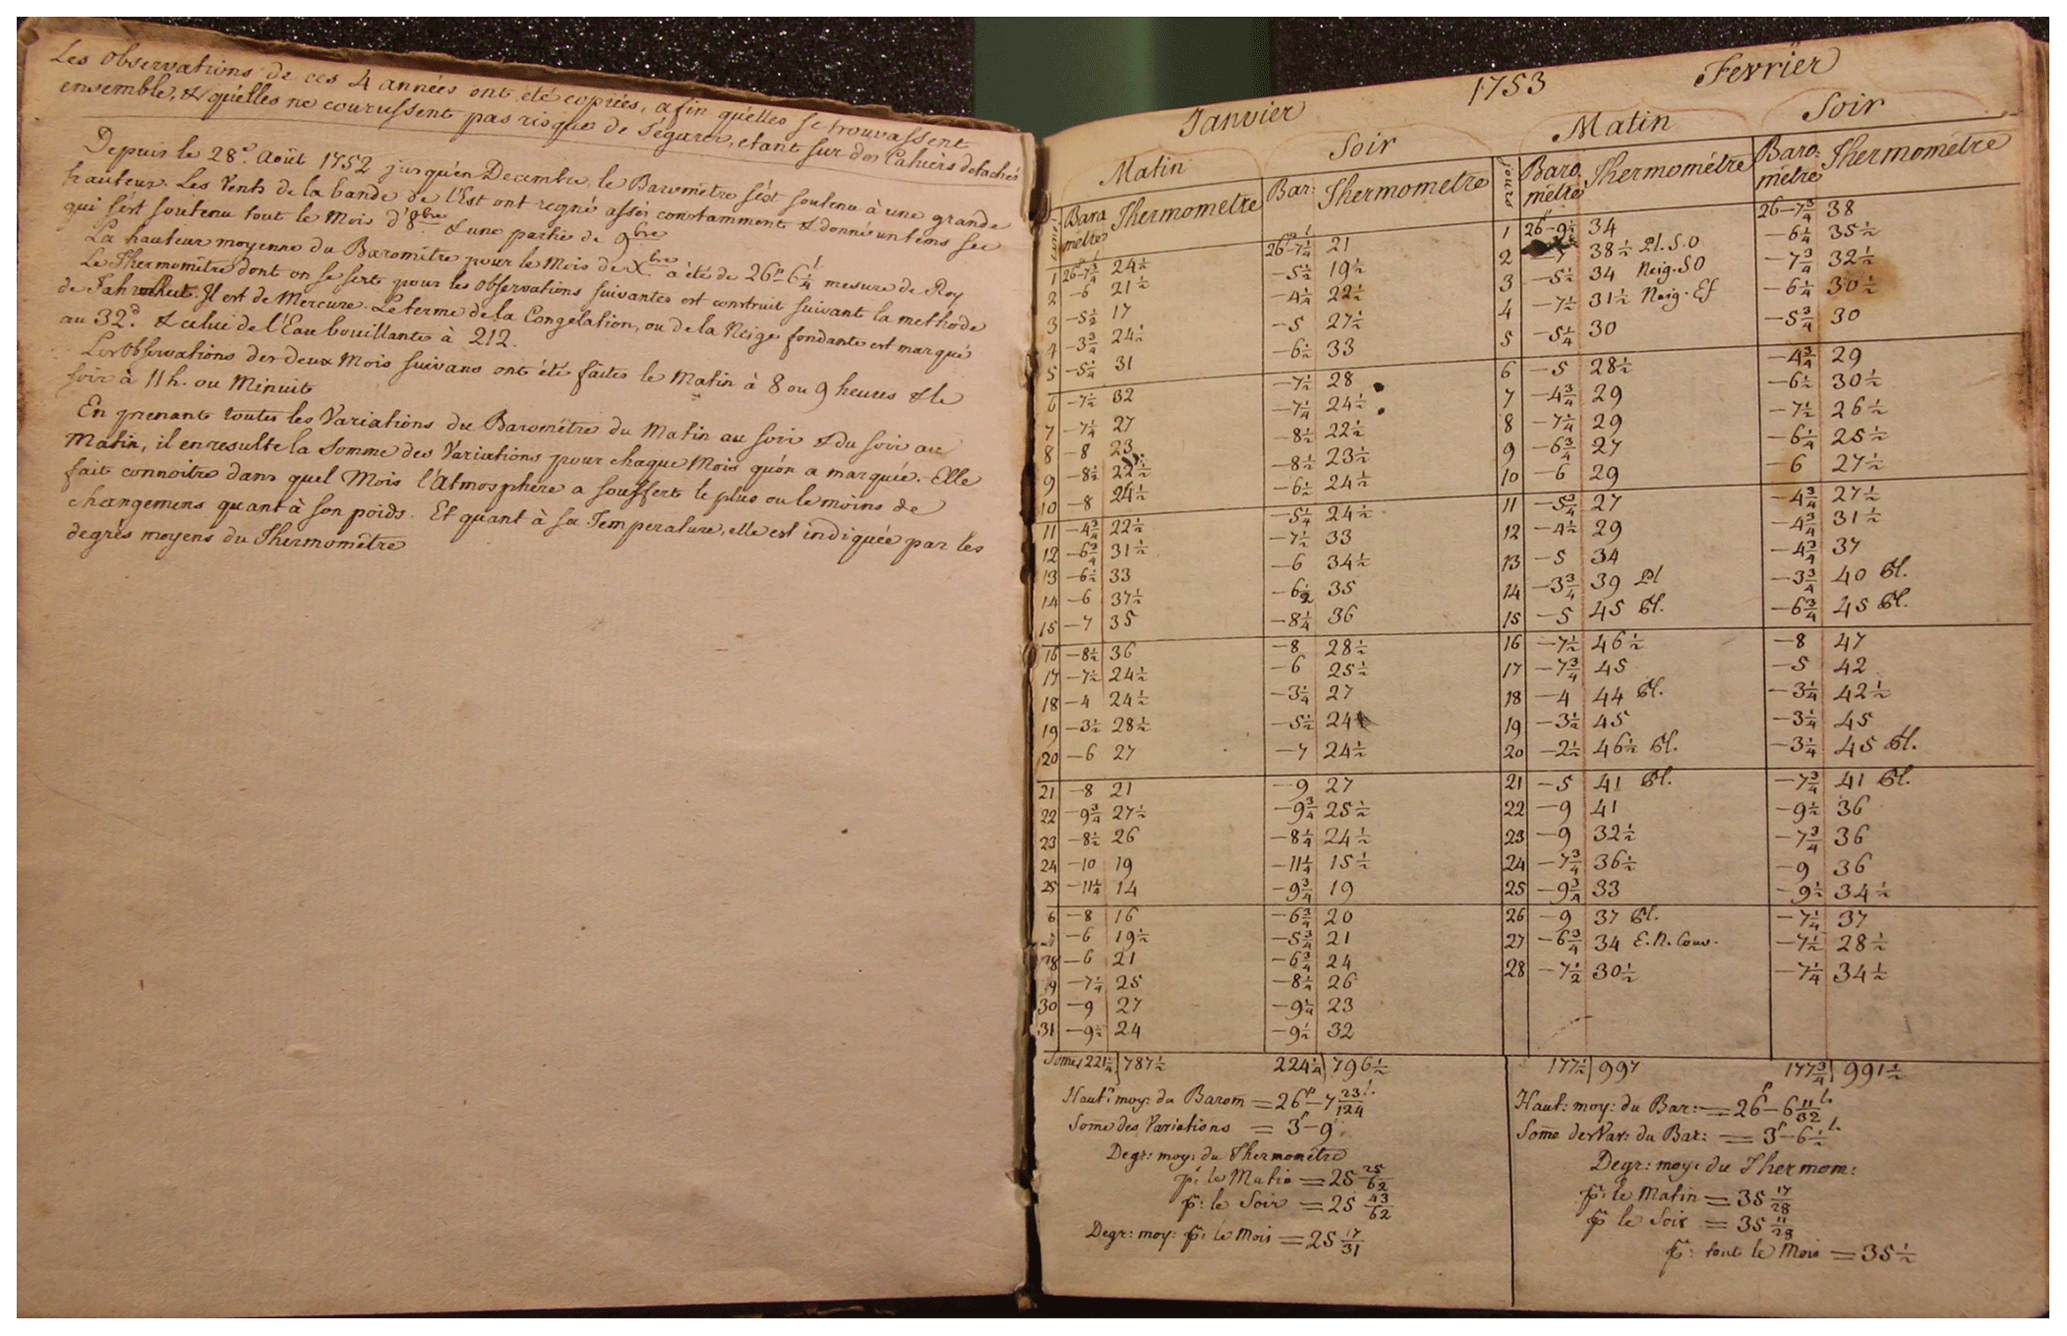 Les Observations de ces 4 années ont été copiées, afin qu'elles se trouvassent
ensemble, & qu'elles ne courussent pas risque de s'égarer, etant sur des Cahiers detachés
Depuis le 28e. Août 1752 jusqu'en Decembre, le Baromêtre s'est soutenu à une grande
hauteur. Les Vents de la bande de l'Est ont regné assés constamment & donné un tems sec
qui s'est soutenu tout le Mois d'8bre & une partie de 9bre
La hauteur moyenne du Baromêtre pour le Mois de Xbre a été de 26p-6 1/4 l mesure de Roy
Le Thermomêtre dont on se sert pour les observations suivantes est construit suivant la methode
de Il est de Mercure. Le terme de la Congelation, ou de la Neige fondante est marqué
au 32d. & celui de l'Eau bouillante à 212.
Les Observations des deux Mois suivans ont été faites le Matin à 8 ou 9 heures & le
soir à 11 h. ou Minuit
En prenant toutes les Variations du Baromêtre du Matin au soir & du soir au
Matin, il en resulte la Somme des Variations pour chaque Mois qu'on a marquée. Elle
fait connoitre dans quel Mois l'Atmosphère a souffert le plus ou le moins de
changemens quant à son poids. Et quant à sa Temperature, elle est indiquée par les
degrés moyens du Thermomêtre
1753
Janvier
Matin Soir
Baromêtre Thermometre Bar: Thermometre
1 26p-7 3/4 24 1/2 26p-7 1/4 21
2 -6 21 1/2 -5 1/2 19 1/2
3 -5 1/2 17 -4 1/4 22 1/2
4 -3 3/4 24 1/2 -5 27 1/2
5 -5 1/4 31 -6 1/2 33
6 -7 1/2 32 -7 1/2 28
7 -7 1/4 27 -7 1/4 24 1/2
8 -8 23 -8 1/2 22 1/2
9 -8 1/2 22 1/2 -8 1/2 23 1/2
10 -8 24 1/2 -6 1/2 24 1/2
11 -4 3/4 22 1/2 -5 1/4 24 1/2
12 -6 3/4 31 1/2 -7 1/2 33
13 -6 1/2 33 -6 34 1/2
14 -6 37 1/2 -6 1/2 35
15 -7 35 -8 1/4 36
16 -8 1/2 36 -8 28 1/2
17 -7 1/2 24 1/2 -6 25 1/2
18 -4 24 1/2 -3 1/4 27
19 -3 1/2 28 1/2 -5 1/2 24
20 -6 27 -7 24 1/2
21 -8 21 -9 27
22 -9 3/4 27 1/2 -9 3/4 25 1/2
23 -8 1/2 26 -8 1/4 24 1/2
24 -10 19 -11 1/4 15 1/2
25 -11 1/4 14 -9 3/4 19
6 -8 16 -6 3/4 20
-6 19 1/2 -5 3/4 21
8 -6 21 -6 3/4 24
9 -7 1/4 25 -8 1/4 26
30 -9 27 -9 1/4 23
31 -9 1/2 24 -9 1/2 32
Some 221 1/4 787 1/2 224 1/4 796 1/2
Haut: moy: du Barom = 26p-7 23/124 l.
Some des Variations = 3p-9
Degr: moy: du Thermomêtre
pr. le Matin = 25 25/62
pr: le Soir = 25 43/62
Degr: moy: pr: le Mois = 25 17/31
Fevrier
Matin Soir
Jours Baromêtre Thermomêtre Baro:mêtre Thermométre
1 26p-9 1/4 34 26-7 3/4 38
2 -7 38 1/2 Pl. S.O -6 1/4 35 1/2
3 -5 1/2 34 Neig. SO -7 3/4 32 1/2
4 -7 1/2 31 1/2 Neig. Est -6 1/4 30 1/2
5 -5 1/4 30 -5 3/4 30
6 -5 28 1/2 -4 3/4 29
7 -4 3/4 29 -6 1/2 30 1/2
8 -7 1/4 29 -7 1/2 26 1/2
9 -6 3/4 27 -6 1/4 25 1/2
10 -6 29 -6 27 1/2
11 -5 3/4 27 -4 3/4 27 1/2
12 -4 1/2 29 -4 3/4 31 1/2
13 -5 34 -4 3/4 37
14 -3 3/4 39 Pl -3 3/4 40 Pl.
15 -5 45 Pl. -6 3/4 45 Pl.
16 -7 1/2 46 1/2 -8 47
17 -7 3/4 45 -5 42
18 -4 44 Pl. -3 1/4 42 1/2
19 -3 1/2 45 -3 1/4 45
20 -2 1/2 46 1/2 Pl. -3 1/4 45 Pl.
21 -5 41 Pl. -7 3/4 41 Pl.
22 -9 41 -9 1/2 36
23 -9 32 1/2 -7 3/4 36
24 -7 3/4 36 1/2 -9 36
25 -9 3/4 33 -9 1/2 34 1/2
26 -9 37 Pl. -7 1/4 37
27 -6 3/4 34 E.N. Couv. -7 1/2 28 1/2
28 -7 1/2 30 1/2 -7 1/4 34 1/2
177 1/2 997 177 3/4 991 1/2
Haut: moy: du Bar: = 26p-6 11/32 l.
Some des Var: du Bar: = 3p-6 1/2 l.
Degr: moy: du Thermom:
pr: le Matin = 35 17/28
pr le Soir = 35 11/28
pr: tout le Mois = 35 1/2